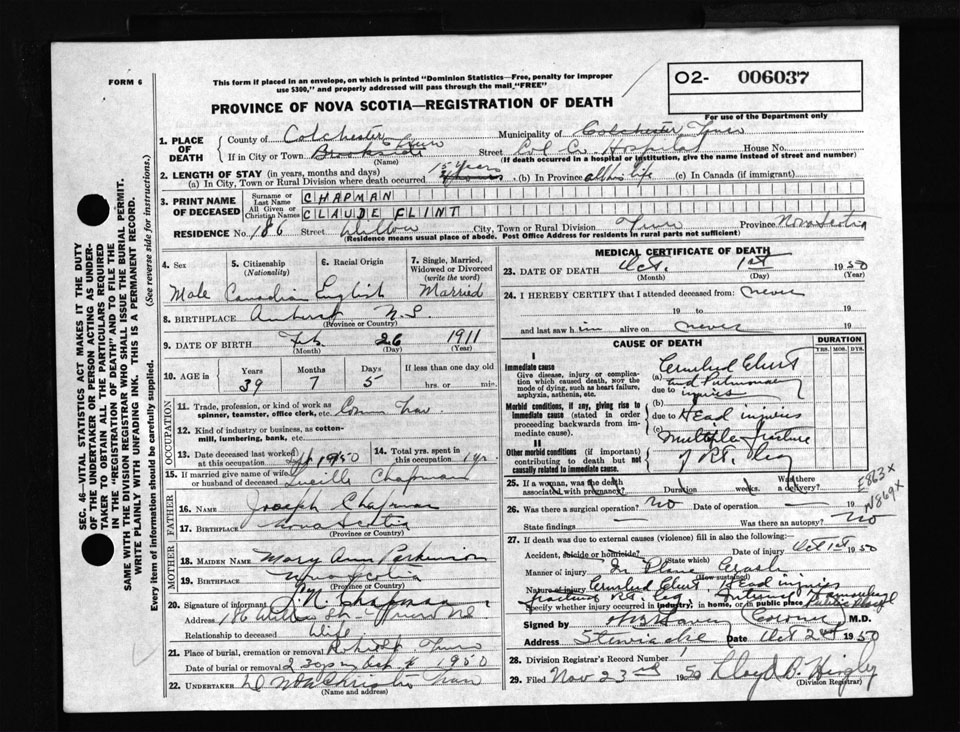 FORM 6
This form if placed in an envelope, on which is printed "Dominion Statistics—Free, penalty for improper
use $300," and properly addressed will pass through the mail "FREE"
PROVINCE OF NOVA SCOTIA—REGISTRATION OF DEATH
02- 006037
For use of the Department only
SEC. 46—VITAL STATISTICS ACT MAKES IT THE DUTY
OF THE UNDERTAKER OR PERSON ACTING AS UNDER-
TAKER TO OBTAIN ALL THE PARTICULARS REQUIRED
IN THE "REGISTRATION OF DEATH" AND TO FILE THE
SAME WITH THE DIVISION REGISTRAR WHO SHALL ISSUE THE BURIAL PERMIT.
WRITE PLAINLY WITH UNFADING INK. THIS IS A PERMANENT RECORD.
Every item of information should be carefully supplied. (See reverse side for instructions.)
1. PLACE OF DEATH County of Colchester Municipality of Colchester Truro
If in City or Town Brookside Truro Street Col. Co. Hospital House No.
(Name) (If death occurred in a hospital or institution, give the name instead of street and number)
2. LENGTH OF STAY (in years, months and days)
(a) In City, Town or Rural Division where death occurred 15 years (b) In Province all his life (c) In Canada (if immigrant)
3. PRINT NAME OF DECEASED
Surname or Last Name CHAPMAN
All Given or Christian Names CLAUDE FLINT
RESIDENCE No. 186 Street Willow City, Town or Rural Division Truro Province Nova Scotia
(Residence means usual place of abode. Post Office Address for residents in rural parts not sufficient)
4. Sex 5. Citizenship (Nationality) 6. Racial Origin 7. Single, Married, Widowed or Divorced (write the word)
Male Canadian English Married
8. BIRTHPLACE Amherst N.S.
(Province or Country)
9. DATE OF BIRTH Feb. 26 1911
(Month) (Day) (Year)
10. AGE in Years Months Days If less than one day old
39 7 5 hrs. or min.
OCCUPATION
11. Trade, profession, or kind of work as
spinner, teamster, office clerk, etc. Comm Trav
12. Kind of industry or business, as cotton-
mill, lumbering, bank, etc.
13. Date deceased last worked at this occupation Sep 1950 14. Total yrs. spent in this occupation 1 yr.
15. If married give name of wife
or husband of deceased Lucille Chapman
FATHER
16. NAME Joseph Chapman
17. BIRTHPLACE Nova Scotia
(Province or Country)
MOTHER
18. MAIDEN NAME Mary Ann Parkinson
19. BIRTHPLACE Nova Scotia
(Province or Country)
20. Signature of informant Chapman
Address 186 Willow St. Truro N.S.
Relationship to deceased Wife
21. Place of burial, cremation or removal Robie St. Truro
Date of burial or removal 2.30 pm 1950
22. UNDERTAKER Christie Truro
(Name and address)
MEDICAL CERTIFICATE OF DEATH
23. DATE OF DEATH Oct. 1st 1950
(Month) (Day) (Year)
24. I HEREBY CERTIFY that I attended deceased from: never
19 to 19
and last saw him alive on never 19
CAUSE OF DEATH DURATION
YRS. MOS. DYS.
I
Immediate cause
Give disease, injury or compli-
cation which caused death, NOT the
mode of dying, such as heart failure,
asphyxia, asthenia, etc.
(a) Crushed Chest
and Pulmonary
due to injuries
Morbid conditions, if any, giving rise to
immediate cause (stated in order
proceeding backwards from im-
mediate cause).
(b)
due to Head injuries
(c) Multiple fracture
of Rt. Leg
II
Other morbid conditions (if important)
contributing to death but not
causally related to immediate cause.
25. If a woman, was the death associated with pregnancy? Duration weeks. Was there a delivery?
E863X
N869X
26. Was there a surgical operation? No Date of operation 19
State findings Was there an autopsy? No
27. If death was due to external causes (violence) fill in also the following:
Accident, suicide or homicide? Date of injury Oct 1st 1950
Manner of injury In Plane Crash
(How sustained)
Nature of injury Crushed Chest, Head injuries
fracture Rt. Leg Internal
Specify whether injury occurred in industry, in home, or in public place Public place
Signed by Coroner M.D.
Address Stewiacke Date Oct 2nd 1950
28. Division Registrar's Record Number
29. Filed Nov 23rd 1950 Lloyd B. Higley
(Division Registrar)